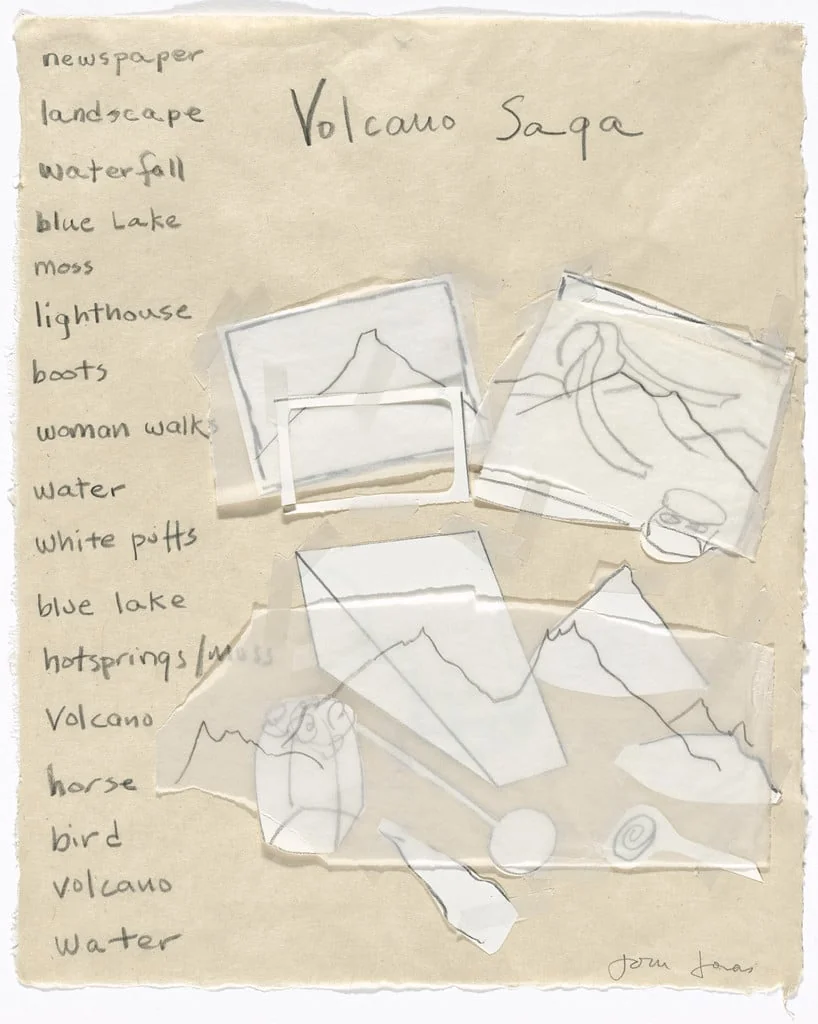 Volcano Saga
newspaper
landscape
waterfall
blue Lake
moss
lighthouse
boots
woman walks
water
white puffs
blue lake
hotsprings/moss
Volcano
horse
bird
volcano
water
Joan Jonas